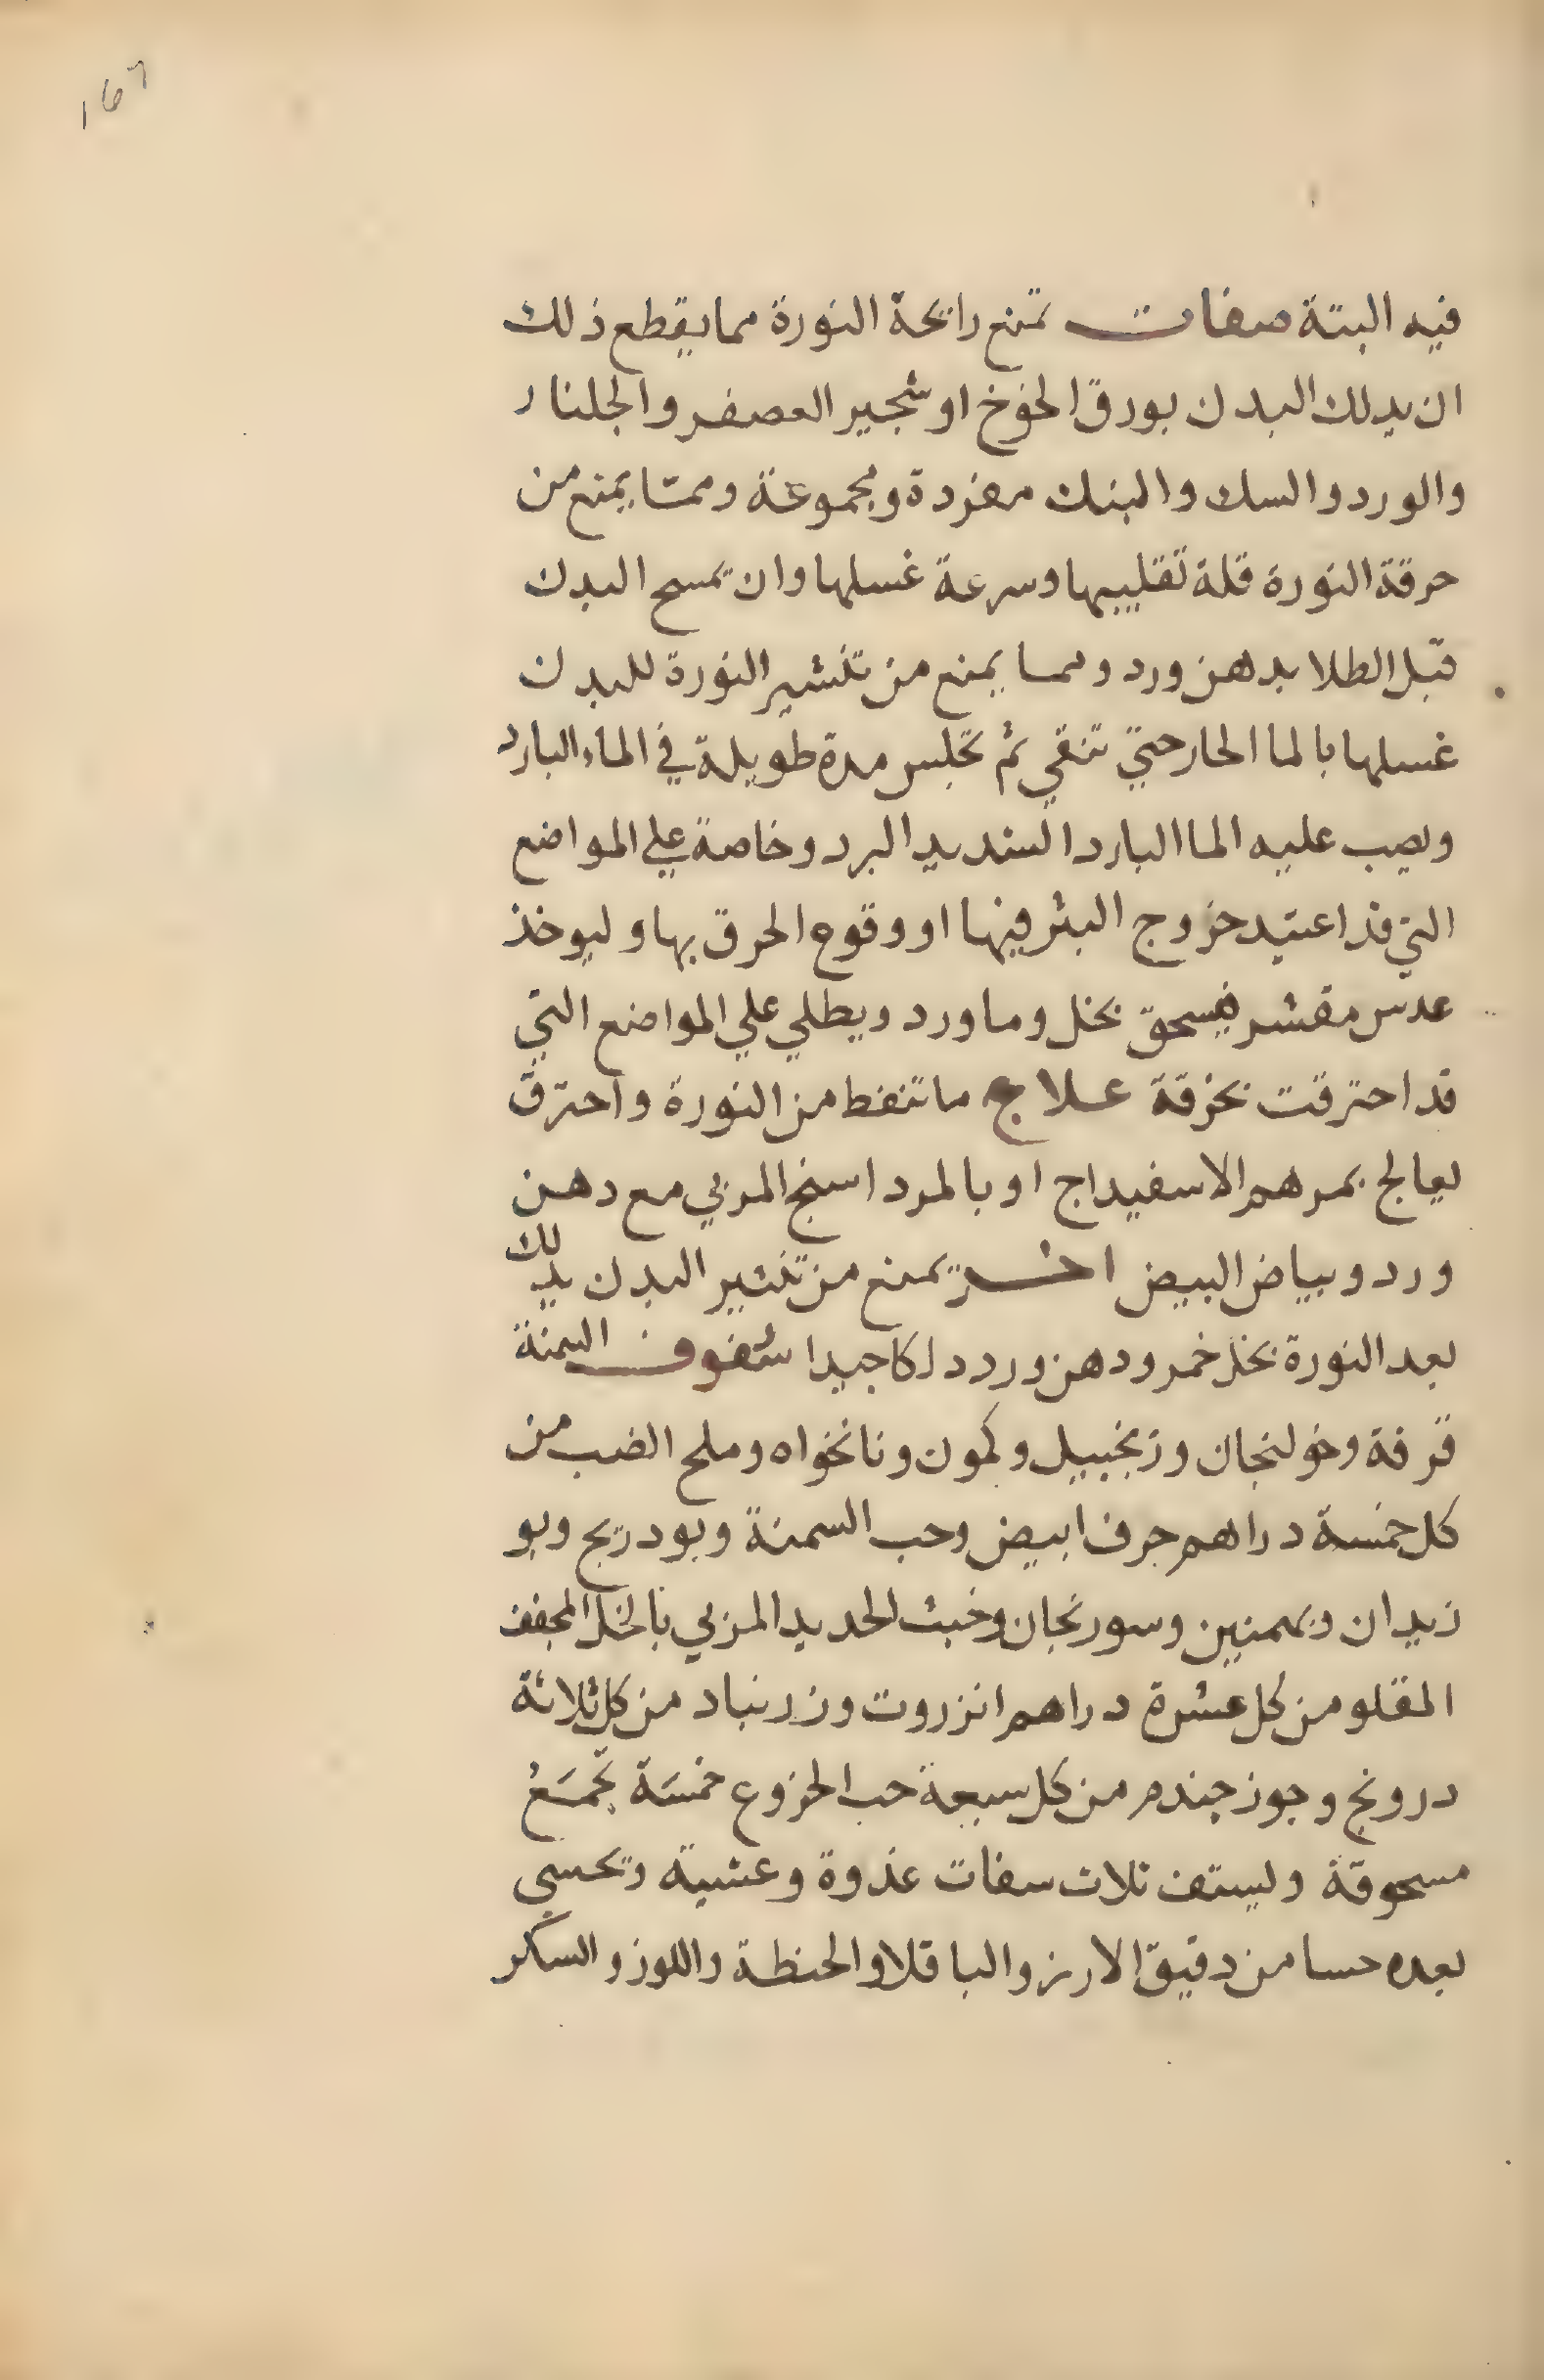 ١٥٦
فيه البتة صفات تمنع رايحة النورة مما يقطع ذلك
ان يدلك البدن بورق الخوخ او شجير العصفر والجلنار
والورد والسك والبنك مفردة ومجموعة ومما يمنع من
حرقة النورة قلة تقليبها وسرعة غسلها وان يمسح البدن
قبل الطلا بدهن ورد ومما يمنع من تنثير النورة للبدن
غسلها بالما الحار حتي تنقي ثم تجلس مدة طويلة في الماء البارد
ويصب عليه الما البارد الشديد البرد وخاصة علي المواضع
التي قد اعتيد خروج البثر فيها او وقوع الحرق بها وليوخذ
عدس مقشر فيسحق بخل وما ورد ويطلي علي المواضع التي
قد احترقت بخرقة علاج ما تنفط من النورة واحترق
يعالج بمرهم الاسفيداج او بالمرداسنج المربي مع دهن
ورد وبياض البيض اخر يمنع من تنثير البدن يدلك
بعد النورة بخل خمر ودهن ورد دلكا جيدا سفوف السمنة
قرفة وخولنجان وزنجبيل وكمون ونانخواه وملح الضب من
كل خمسة دراهم حرف ابيض وحب السمنة وبودريج وبو
زيدان وبهمنين وسورنجان وخبث الحديد المربي بالخل المجفف
المقلو من كل عشرة دراهم انزروت وزرنباد من كل ثلاثة
درونج وجوز جندم من كل سبعة حب الخروع خمسة تجمع
مسحوقة وليستف ثلاث سفات غدوة وعشية وتحسي
بعده حسا من دقيق الارز والباقلا والحنطة واللوز والسكر